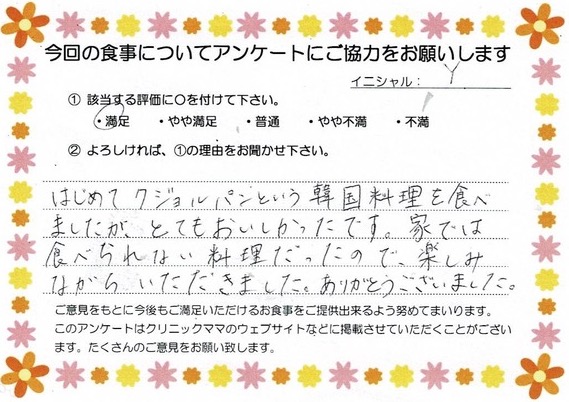 今回の食事についてアンケートにご協力をお願いします
イニシャル： Y
① 該当する評価に○を付けて下さい。
・満足 ・やや満足 ・普通 ・やや不満 ・不満
② よろしければ、①の理由をお聞かせ下さい。
はじめて クジョルパンという 韓国料理を食べ
ましたが、とてもおいしかったです。家では
食べられない料理だったので、楽しみ
ながら いただきました。ありがとうございました。
ご意見をもとに今後もご満足いただけるお食事をご提供出来るよう努めてまいります。
このアンケートはクリニックママのウェブサイトなどに掲載させていただくことがござい
ます。たくさんのご意見をお願い致します。